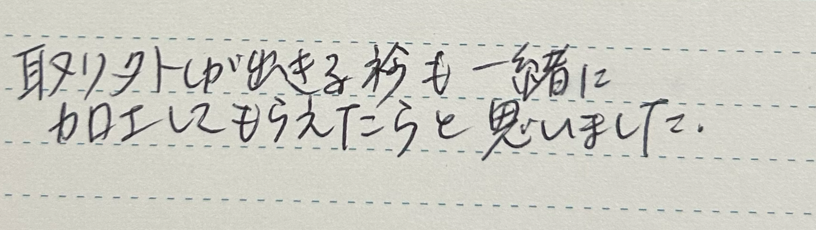 取り外しが出きる衿も一緒に
加工してもらえたらと思いました.